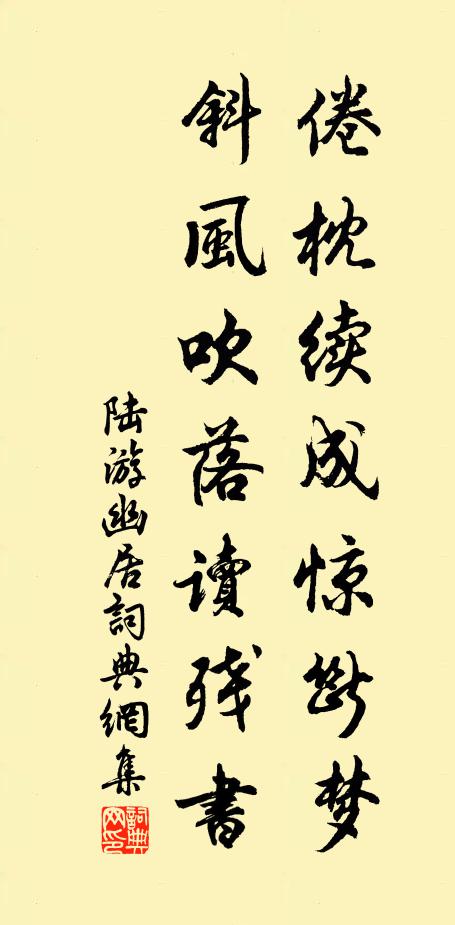 倦枕续成惊断梦
斜風吹落讀残書
陆游幽居詞典網集
詞典
网印